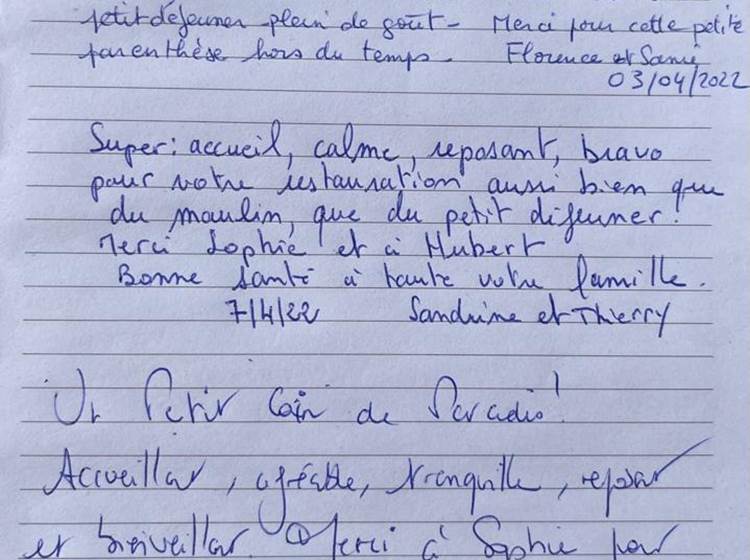 petit déjeuner plein de goût - Merci pour cette petite
parenthèse hors du temps. Florence et
03/04/2022
Super: accueil, calme, reposant, bravo
pour votre restauration aussi bien que
du moulin, que du petit déjeuner!
Merci Sophie et à Hubert
Bonne santé à toute votre famille.
7/4/22 Sandrine et Thierry
Un Petit Coin de Paradis!
Accueillant, agréable, tranquille, reposant
et bienveillant. Merci à Sophie pour